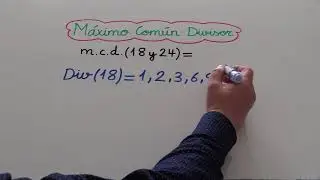 Máximo Común Divisor
m.c.d.(18 y 24)=
Div(18)=1,2,3,6,9